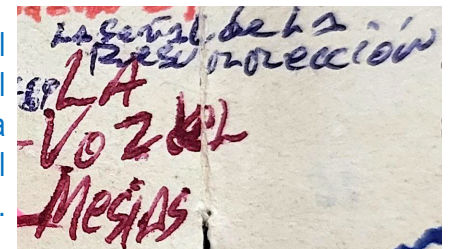 LA señal de LA
Resurrección
LA
Voz DEL
Mesias